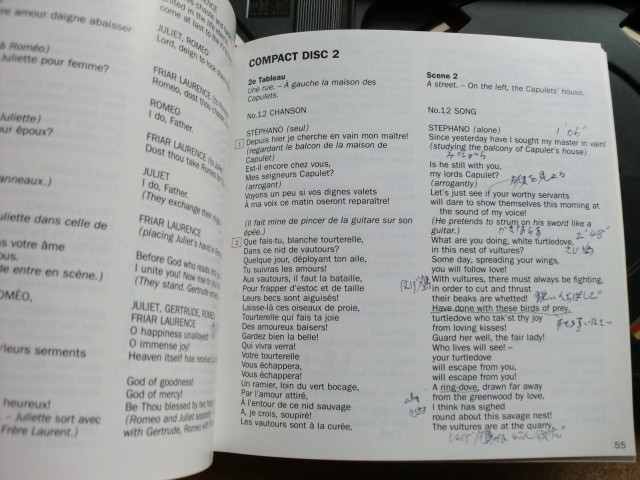 re amour daigne abaisser
à Roméo)
Juliette pour femme?
Juliette)
ur époux?
anneaux.)
uliette dans celle de
s votre âme
ous.
de entre en scène.)
OMÉO,
/leurs serments
heureux!
– Juliette sort avec
Frère Laurent.)
come at last to the
JULIET, ROMEO
Lord, deign to look
FRIAR LAURENCE (to
Romeo, dost thou
ROMEO
I do, Father.
FRIAR LAURENCE (to
Dost thou take Romeo
JULIET
I do, Father.
(They exchange
FRIAR LAURENCE
(placing Juliet's hand in
Before God who reads
I unite you! Now rise
(They stand. Gertrude
JULIET, GERTRUDE, ROMEO
FRIAR LAURENCE
O happiness unalloyed
O immense joy!
Heaven itself has received
God of goodness!
God of mercy!
Be Thou blessed by two
(Romeo and Juliet separate
with Gertrude, Romeo with
COMPACT DISC 2
2e Tableau
Une rue. – À gauche la maison des
Capulets.
No.12 CHANSON
STÉPHANO (seul)
1 Depuis hier je cherche en vain mon maître!
(regardant le balcon de la maison de
Capulet)
Est-il encore chez vous,
Mes seigneurs Capulet?
(arrogant)
Voyons un peu si vos dignes valets
A ma voix ce matin oseront reparaître!
(Il fait mine de pincer de la guitare sur son
épée.)
2 Que fais-tu, blanche tourterelle,
Dans ce nid de vautours?
Quelque jour, déployant ton aile,
Tu suivras les amours!
Aux vautours, il faut la bataille,
Pour frapper d'estoc et de taille
Leurs becs sont aiguisés!
Laisse-là ces oiseaux de proie,
Tourterelle qui fais ta joie
Des amoureux baisers!
Gardez bien la belle!
Qui vivra verra!
Votre tourterelle
Vous échappera,
Vous échappera!
Un ramier, loin du vert bocage,
Par l'amour attiré,
À l'entour de ce nid sauvage
A, je crois, soupiré!
Les vautours sont à la curée,
Scene 2
A street. – On the left, the Capulets' house.
No.12 SONG
STEPHANO (alone)
1'06"
Since yesterday have I sought my master in vain!
(studying the balcony of Capulet's house)
Is he still with you,
my lords Capulet?
(arrogantly)
Let's just see if your worthy servants
will dare to show themselves this morning at
the sound of my voice!
(He pretends to strum on his sword like a
guitar.)
What are you doing, white turtledove,
in this nest of vultures?
Some day, spreading your wings,
you will follow love!
With vultures, there must always be fighting,
in order to cut and thrust
their beaks are whetted!
Have done with these birds of prey,
turtledove who tak'st thy joy
from loving kisses!
Guard her well, the fair lady!
Who lives will see! –
your turtledove
will escape from you,
will escape from you!
A ring-dove, drawn far away
from the greenwood by love,
I think has sighed
round about this savage nest!
The vultures are at the quarry,
55